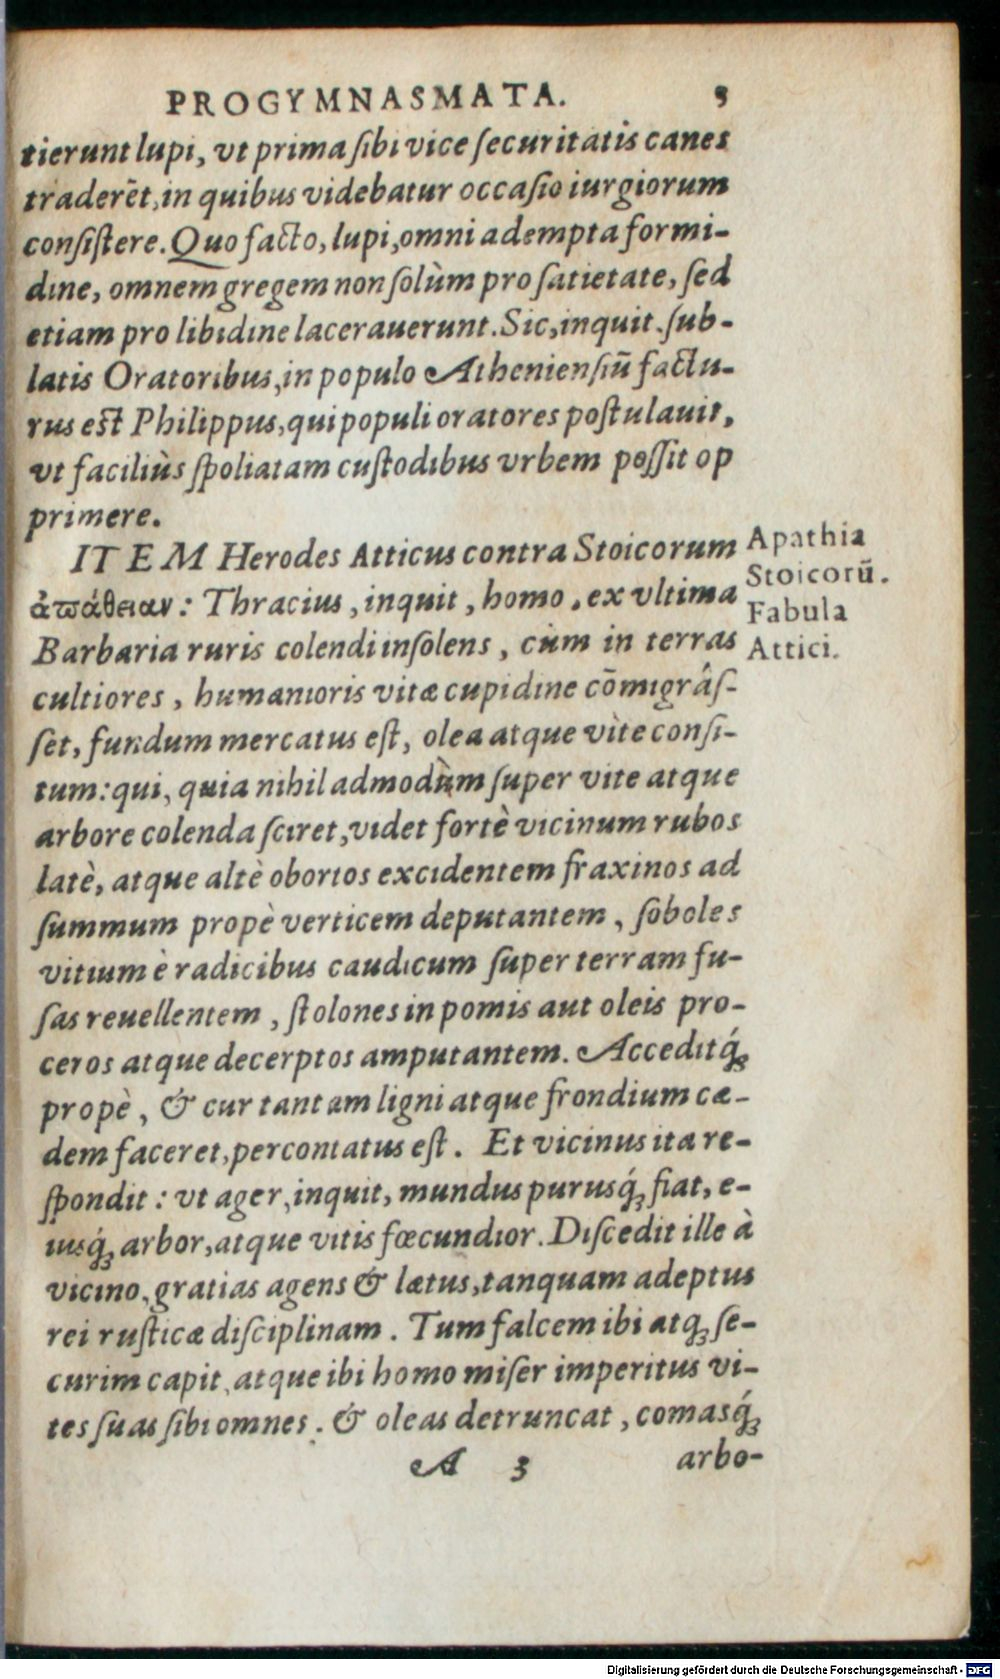 PROGYMNASMATA. 5
tierunt lupi, vt prima sibi vice securitatis canes
traderẽt, in quibus videbatur occasio iurgiorum
consistere. Quo facto, lupi, omni adempta formi-
dine, omnem gregem non solùm pro satietate, sed
etiam pro libidine lacerauerunt. Sic, inquit, sub-
latis Oratoribus, in populo Atheniensiũ factu-
rus est Philippus, qui populi oratores postulauit,
vt faciliùs spoliatam custodibus vrbem possit op
primere.
ITEM Herodes Atticus contra Stoicorum
ἀπάθειαν: Thracius, inquit, homo, ex vltima
Barbaria ruris colendi insolens, cùm in terras
cultiores, humanioris vitæ cupidine cõmigrâs-
set, fundum mercatus est, olea atque vite consi-
tum: qui, quia nihil admodùm super vite atque
arbore colenda sciret, videt fortè vicinum rubos
latè, atque altè obortos excidentem fraxinos ad
summum propè verticem deputantem, soboles
vitium è radicibus caudicum super terram fu-
sas reuellentem, stolones in pomis aut oleis pro-
ceros atque decerptos amputantem. Acceditq́;
propè, & cur tantam ligni atque frondium cæ-
dem faceret, percontatus est. Et vicinus ita re-
spondit: vt ager, inquit, mundus purusq́; fiat, e-
iusq́; arbor, atque vitis fœcundior. Discedit ille à
vicino, gratias agens & lætus, tanquam adeptus
rei rusticæ disciplinam. Tum falcem ibi atq; se-
curim capit, atque ibi homo miser imperitus vi-
tes suas sibi omnes, & oleas detruncat, comasq́;
A 3 arbo-
Apathia
Stoicorũ.
Fabula
Attici.
Digitalisierung gefördert durch die Deutsche Forschungsgemeinschaft - DFG